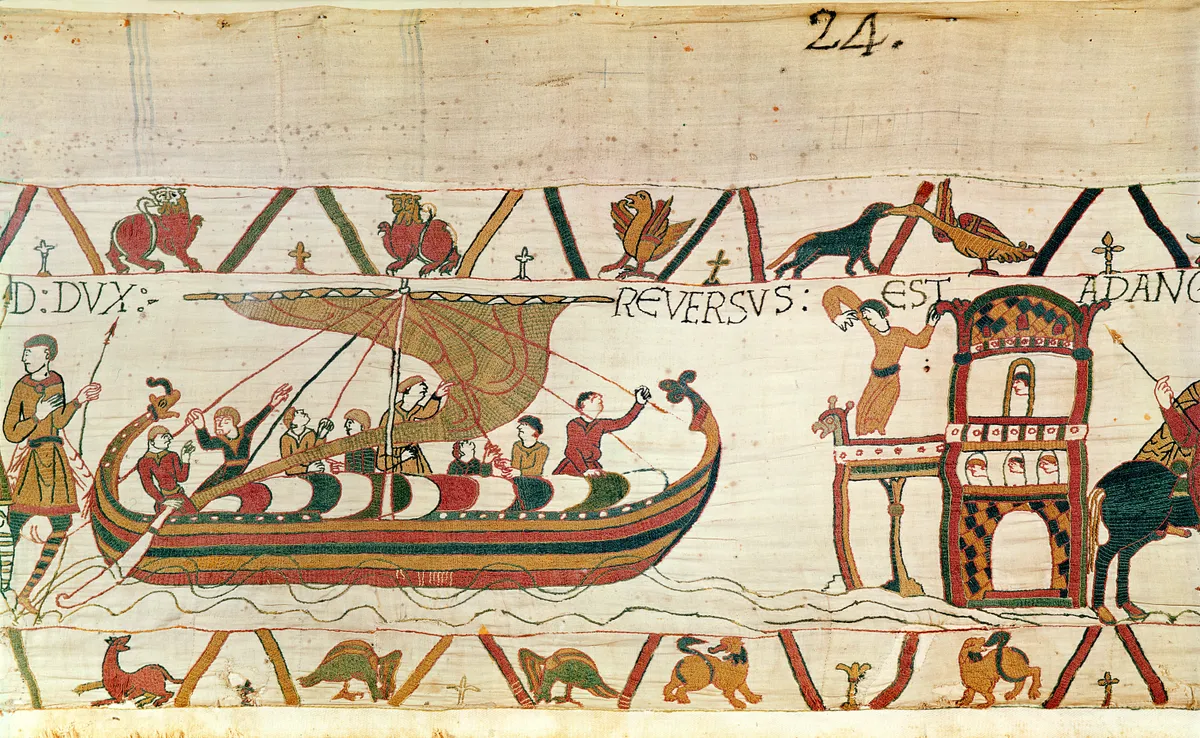 24.
D : DVX :
REVERSVS : EST ADANG